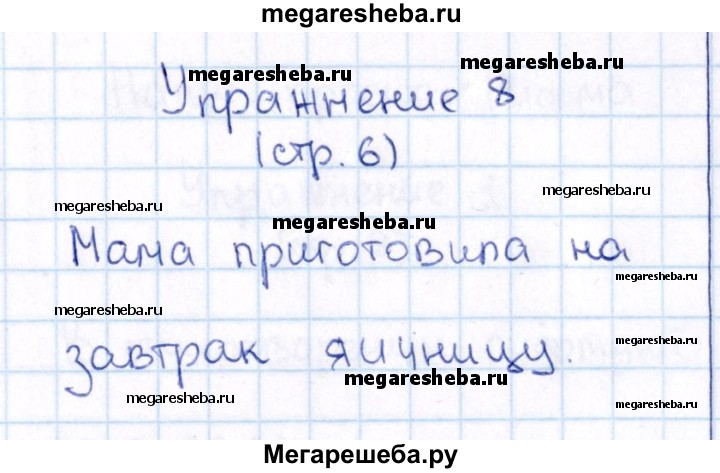 megaresheba.ru
megaresheba.ru
Упражнение 8
(стр. 6)
megaresheba.ru
megaresheba.ru
megaresheba.ru
Мама приготовила на
megaresheba.ru
megaresheba.ru
megaresheba.ru
завтрак яичницу.
megaresheba.ru
megaresheba.ru
megaresheba.ru
Мегарешеба.ру